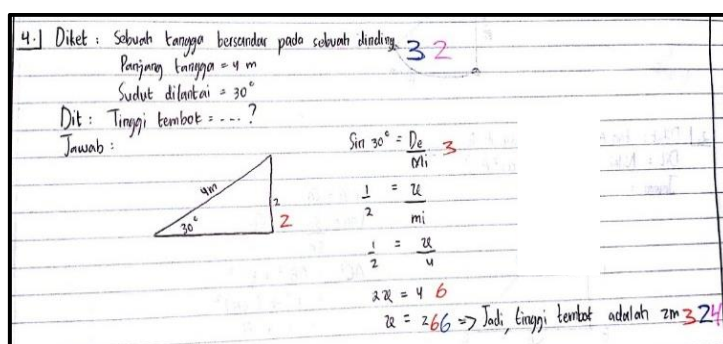 4.) Diket : Sebuah tangga bersandar pada sebuah dinding 3 2
Panjang tangga = 4 m
Sudut dilantai = 30°
Dit : Tinggi tembok = ---- ?
Jawab :
4m
30°
2
2
Sin 30° = De/Mi 3
1/2 = x/mi
1/2 = x/4
2x = 4 6
x = 2 6 6 => Jadi, tinggi tembok adalah 2m 3 2 4